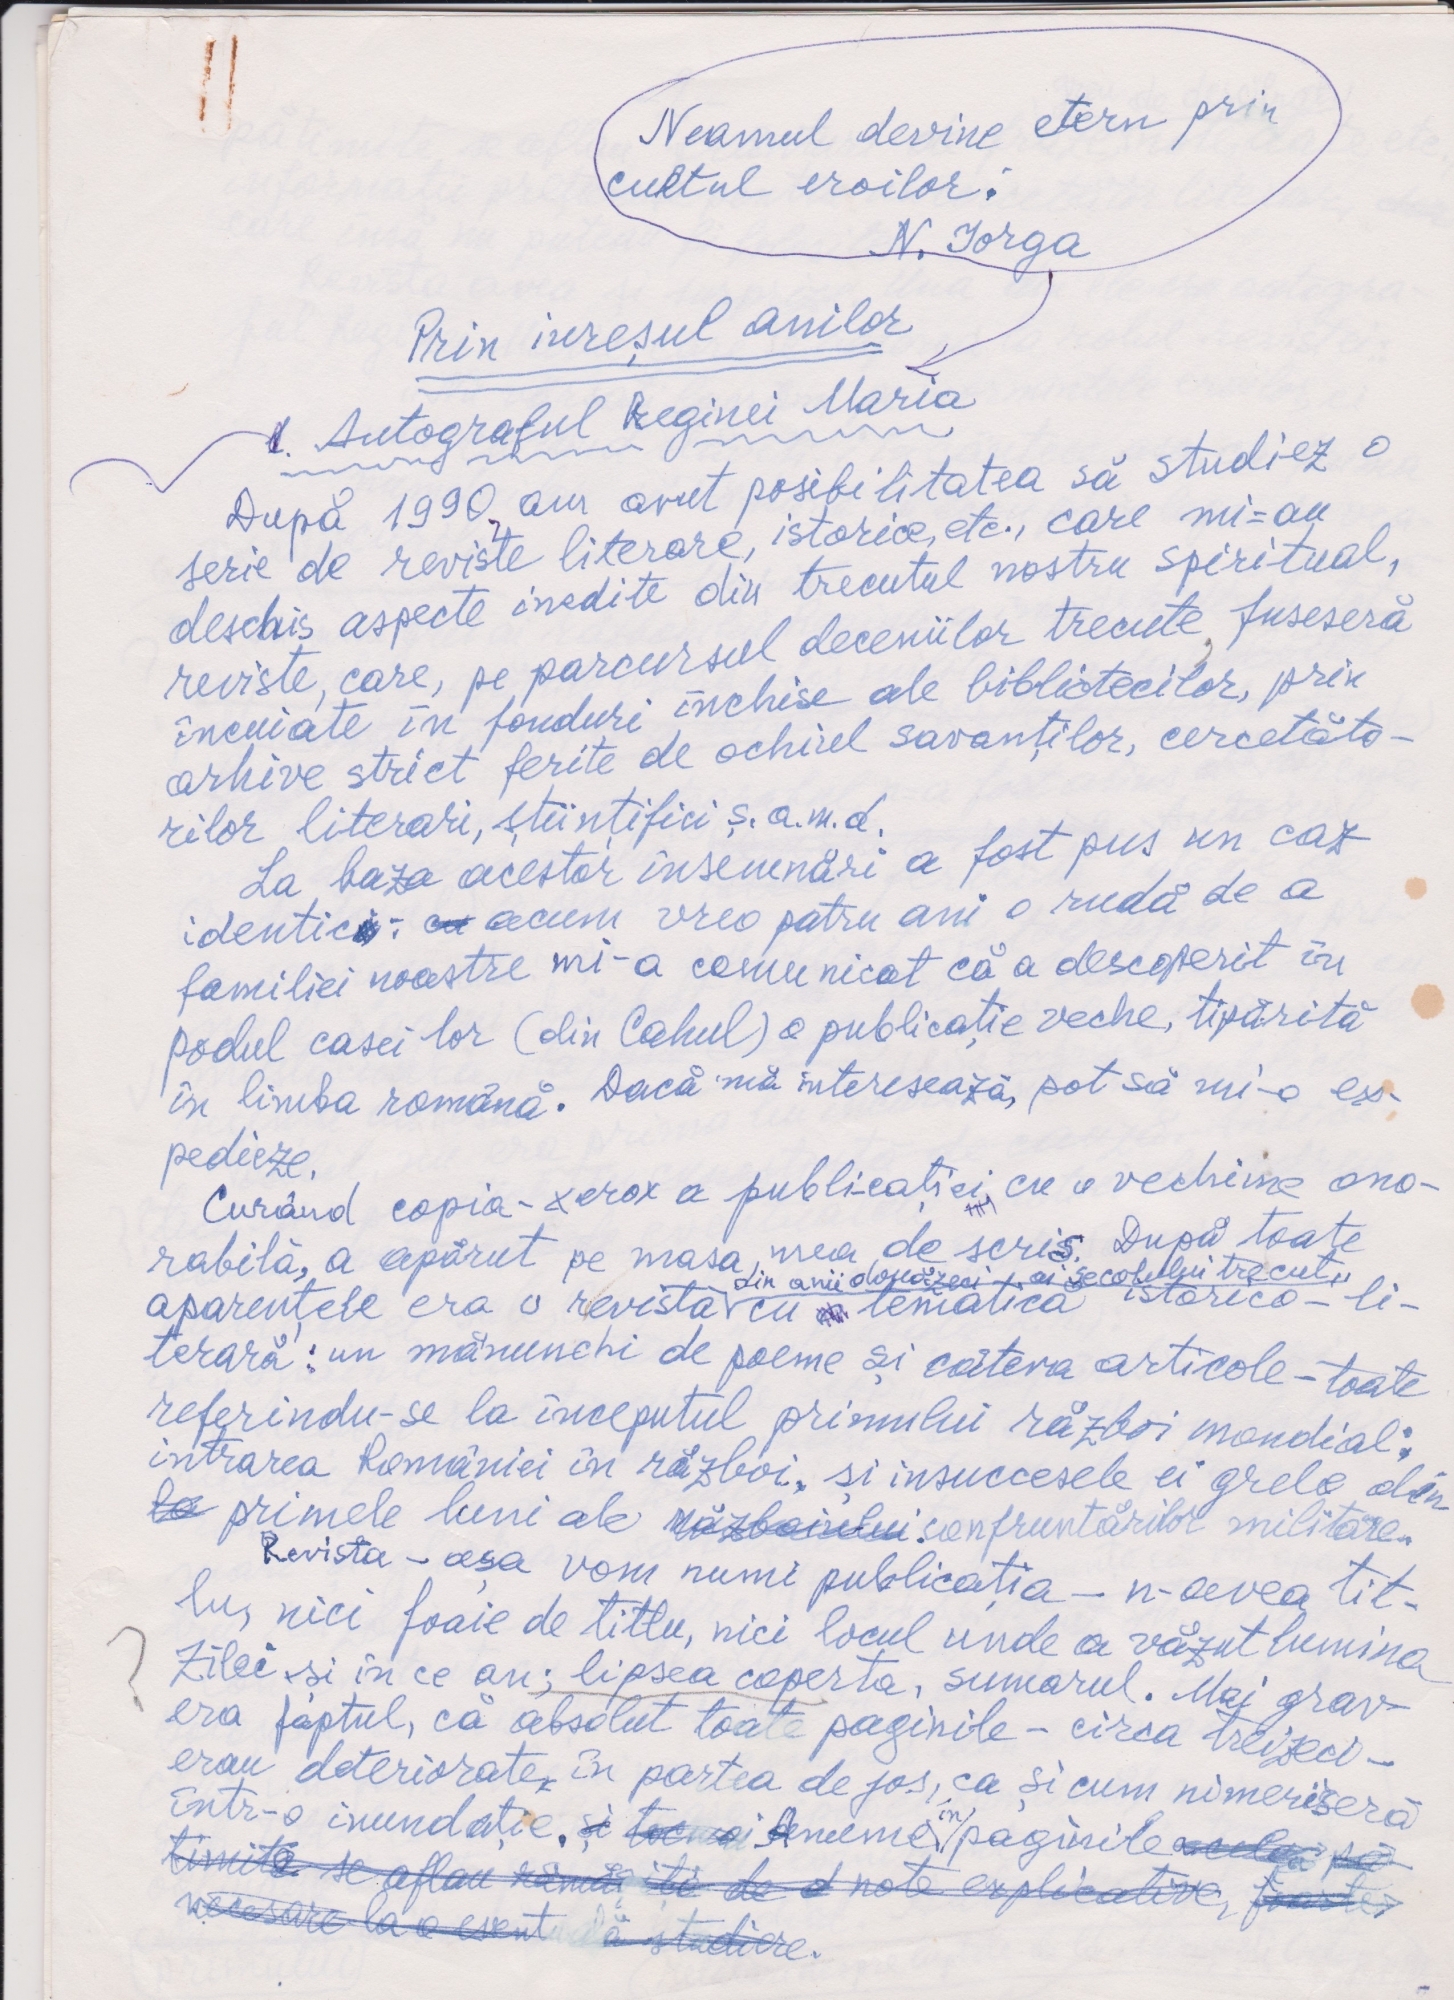 Neamul devine etern prin
cultul eroilor.
N. Iorga
Prin iureșul anilor
1. Autograful Reginei Maria
După 1990, am avut posibilitatea să studiez o
serie de reviste literare, istorice, etc., care mi-au
deschis aspecte inedite din trecutul nostru spiritual,
reviste, care, pe parcursul deceniilor trecute, fuseseră
încuiate în fonduri închise ale bibliotecilor, prin
arhive strict ferite de ochiul savanților, cercetăto-
rilor literari, științifici ș.a.m.d.
La baza acestor însemnări a fost pus un caz
identic: cu acum vreo patru ani o rudă de a
familiei noastre mi-a comunicat că a descoperit în
podul casei lor (din Cahul) o publicație veche, tipărită
în limba română. Dacă mă interesează, pot să mi-o ex-
pedieze.
Curând copia-xerox a publicației, cu o vechime ono-
rabilă, a apărut pe masa mea de scris. După toate
din anii douăzeci ai secolului trecut,
aparențele era o revistă cu tematică istorico-li-
terară: un mănunchi de poeme și câteva articole - toate
referindu-se la începutul primului război mondial:
intrarea României în război, și insuccesele ei grele din
la primele luni ale războiului confruntărilor militare.
Revista - așa vom numi publicația - n-avea tit-
lu, nici foaie de titlu, nici locul unde a văzut lumina
? zilei și în ce an; lipsea coperta, sumarul. Mai grav
era faptul, că absolut toate paginile - circa treizeci -
erau deteriorate, în partea de jos, ca și cum nimeriseră
într-o inundație. și Anume în paginile
se aflau de note explicative,
necesare la o studiere.